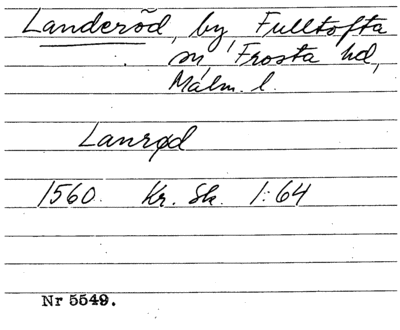 Landeröd, by, Fulltofta
sn, Frosta hd,
Malm. l.
Lanrød
1560. Kr. Sk. 1:64
Nr 5549.